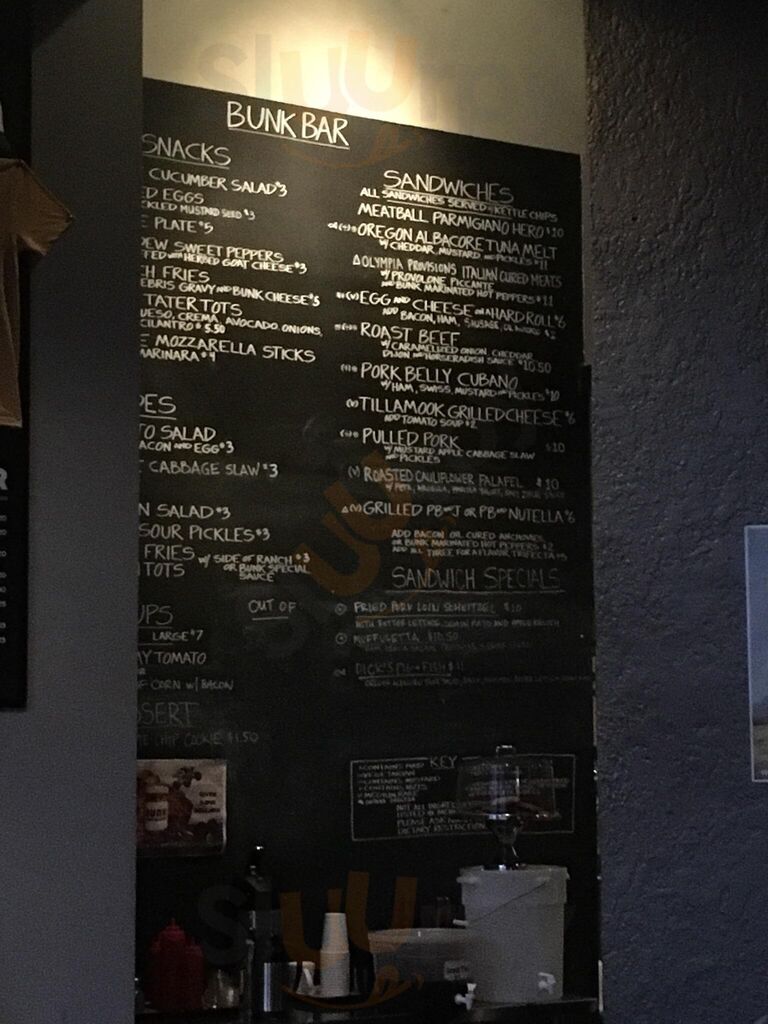 BUNK BAR
SNACKS
CUCUMBER SALAD $3
D EGGS
CKLED MUSTARD SEED $3
E PLATE $5
DEW SWEET PEPPERS
FED W/ HERBED GOAT CHEESE $3
CH FRIES
EBRIS GRAVY AND BUNK CHEESE $5
TATER TOTS
UESO, CREMA, AVOCADO, ONIONS,
CILANTRO $5.50
E MOZZARELLA STICKS
MARINARA $4
DES
TO SALAD
ACON AND EGG $3
CABBAGE SLAW $3
N SALAD $3
SOUR PICKLES $3
FRIES W/ SIDE OF RANCH $3
TOTS OR BUNK SPECIAL
SAUCE
UPS
LARGE $7
AY TOMATO
OUT OF:
F CORN W/ BACON
SSERT
TE CHIP COOKIE $1.50
SANDWICHES
ALL SANDWICHES SERVED W/ KETTLE CHIPS
MEATBALL PARMIGIANO HERO $10
OREGON ALBACORE TUNA MELT
W/ CHEDDAR, MUSTARD AND PICKLES $11
OLYMPIA PROVISIONS ITALIAN CURED MEATS
W/ PROVOLONE PICCANTE
AND BUNK MARINATED HOT PEPPERS $11
(V) EGG AND CHEESE ON A HARD ROLL $6
ADD BACON, HAM, SAUSAGE, OR $2
ROAST BEEF
W/ CARAMELIZED ONION, CHEDDAR
DIJON AND HORSERADISH SAUCE $10.50
PORK BELLY CUBANO
W/ HAM, SWISS, MUSTARD AND PICKLES $10
(V) TILLAMOOK GRILLED CHEESE $6
ADD TOMATO SOUP $2
PULLED PORK $10
W/ MUSTARD, APPLE CABBAGE SLAW
AND PICKLES
(V) ROASTED CAULIFLOWER FALAFEL $10
(V) GRILLED PB AND J OR PB AND NUTELLA $6
ADD BACON, OIL CURED ANCHOVIES,
OR BUNK MARINATED HOT PEPPERS $2
ADD ALL THREE FOR A FLAVOR TRIFECTA $5
SANDWICH SPECIALS
FRIED PORK LOIN SCHNITZEL $10
MUFFULETTA $10.50
KEY
NOT ALL INGRE
LISTED IN MEN
PLEASE ASK
DIETARY RESTRICTION